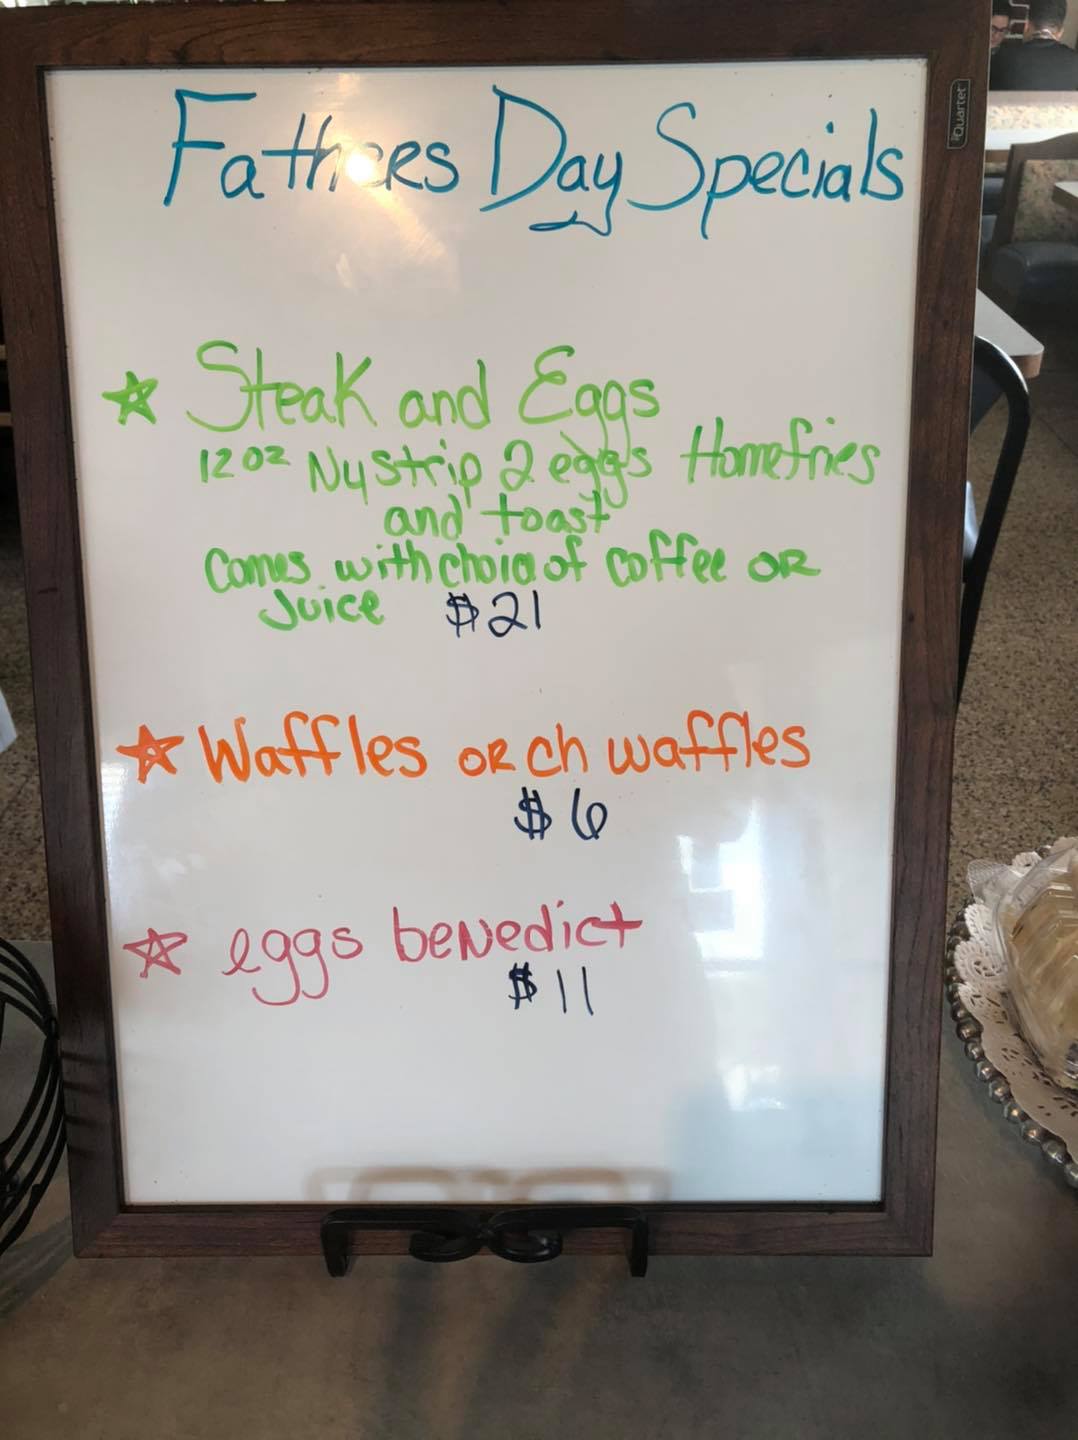 Fathers Day Specials
Quartet
Steak and Eggs
12oz Ny Strip 2 eggs Homefries
and toast
Comes with choice of coffee or
Juice $21
Waffles or ch waffles
$6
eggs benedict
$11